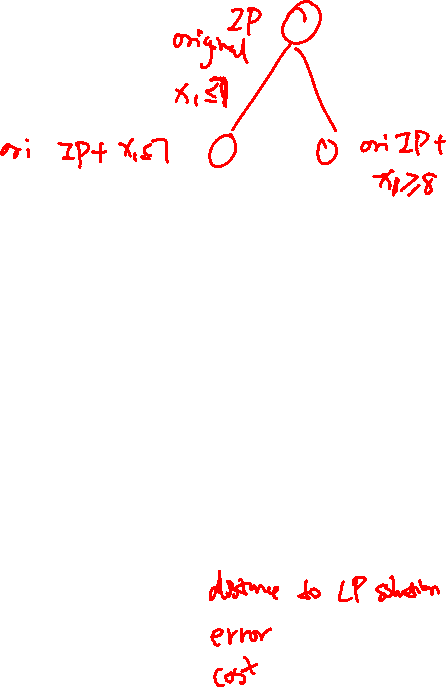 IP
original
x₁≤7
ori IP+ x₁≤7
ori IP+
x₁≥8
distance to LP solution
error
cost